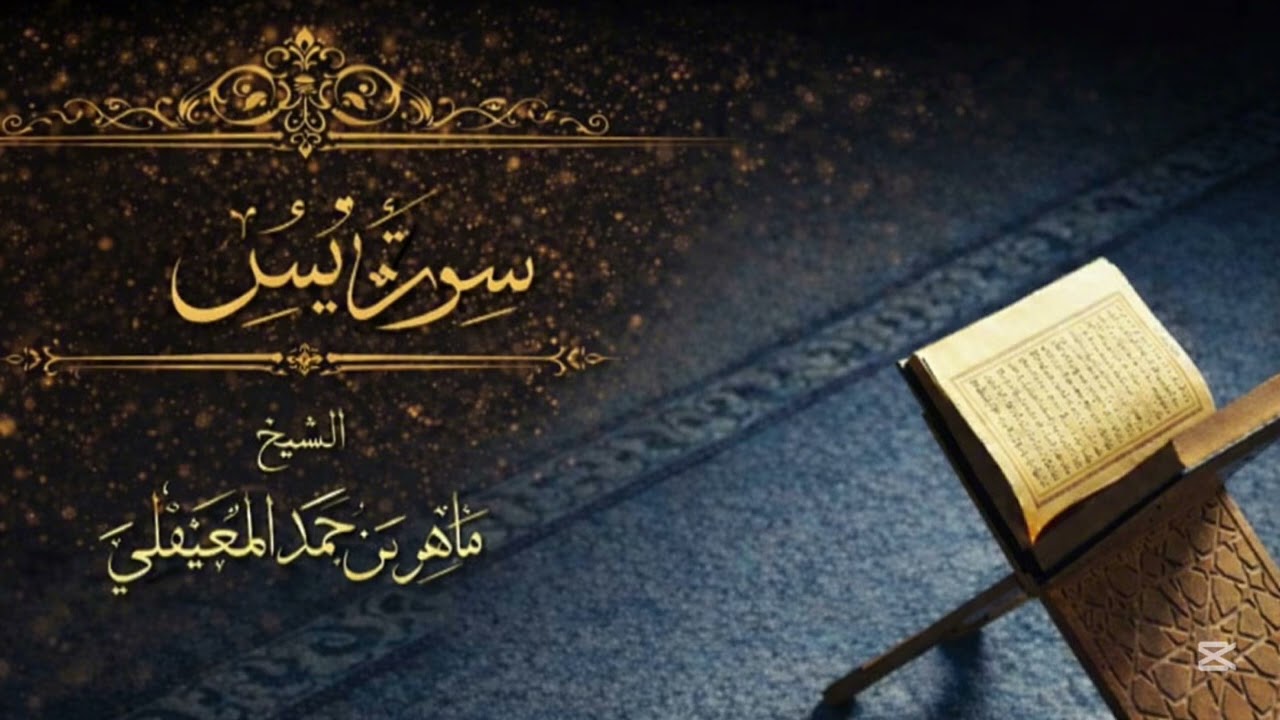 سورة يس
الشيخ
ماهر بن حمد المعيقلي